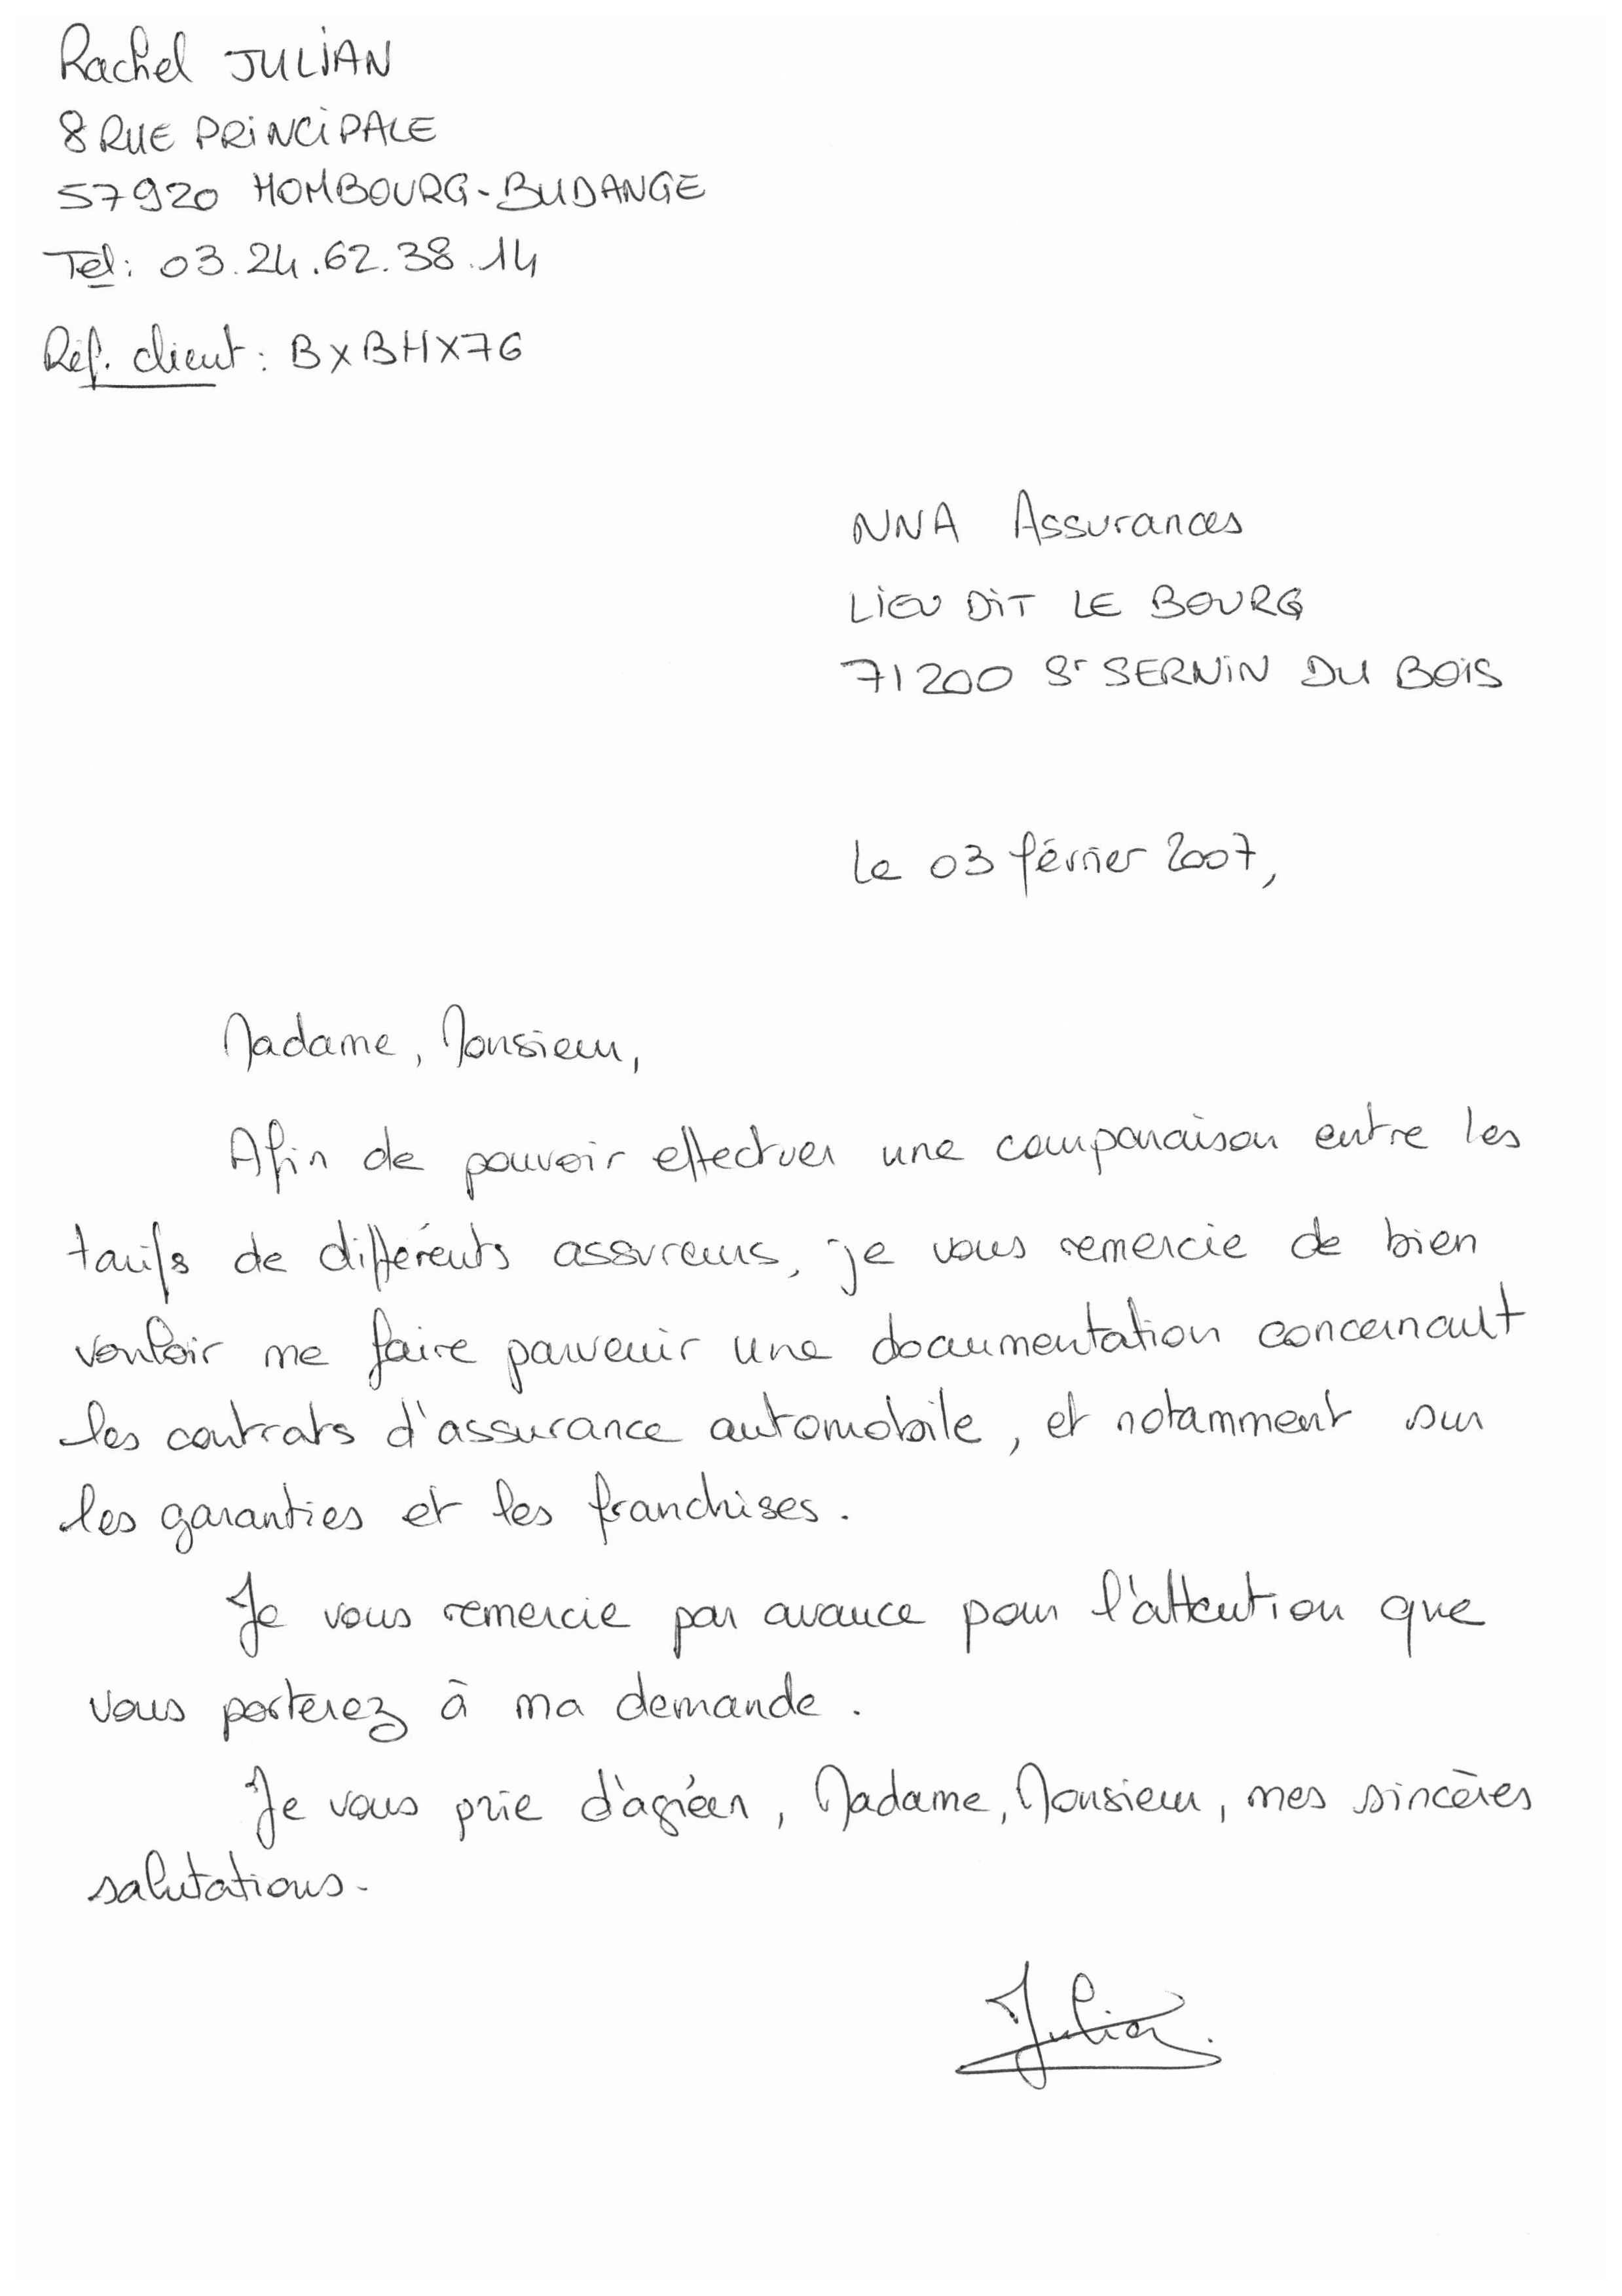 Rachel JULIAN
8 RUE PRINCIPALE
57920 HOMBOURG-BUDANGE
Tel: 03.24.62.38.14
Réf. client : BXBHX76
NNA Assurances
LIEU DIT LE BOURG
71200 St SERNIN DU BOIS
le 03 février 2007,
Madame, Monsieur,
Afin de pouvoir effectuer une comparaison entre les
tarifs de différents assureurs, je vous remercie de bien
vouloir me faire parvenir une documentation concernant
les contrats d'assurance automobile, et notamment sur
les garanties et les franchises.
Je vous remercie par avance pour l'attention que
vous porterez à ma demande.
Je vous prie d'agréer, Madame, Monsieur, mes sincères
salutations.
Julian